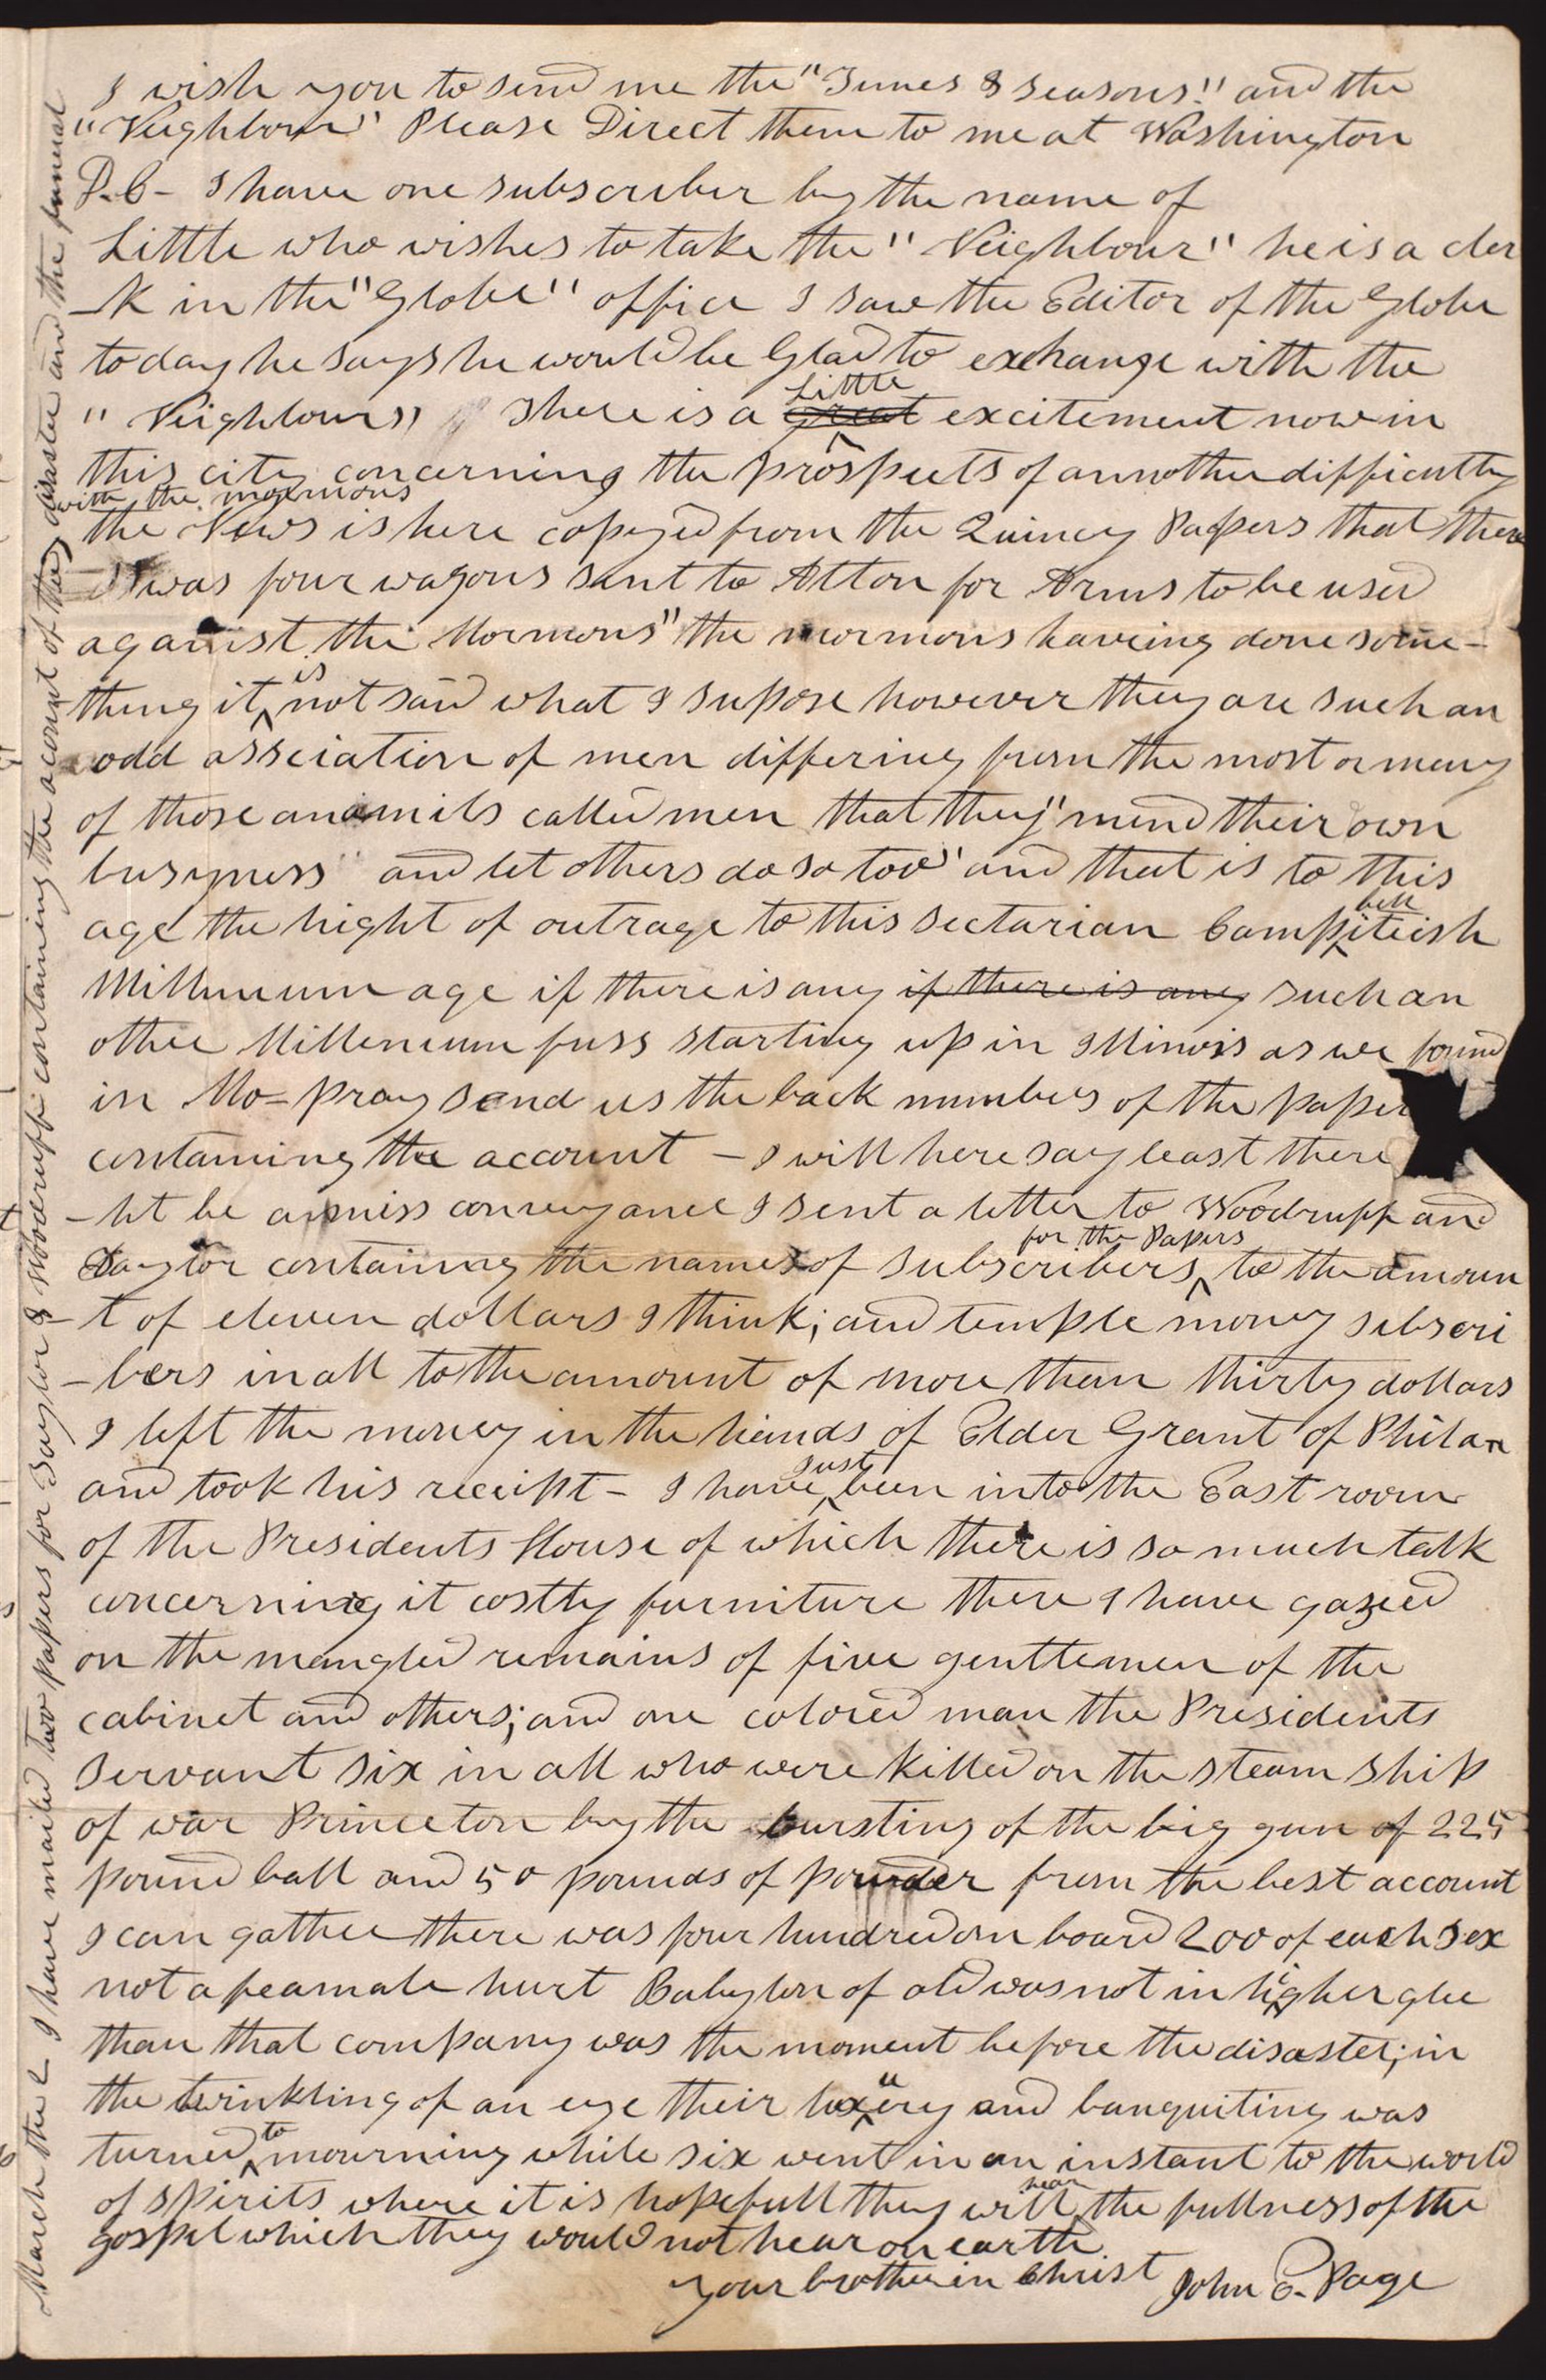 I wish you to send me the "Times & seasons." and the
"Neighbour" Please Direct them to me at Washington
D.C- I have one subscriber by the name of
Little who wishes to take the "Neighbour" he is a cler
-k in the "Globe" office I saw the Editor of the Globe
to day he says he would be Glad to exchange with the
"Neighbour" There is a great Little excitement now in
this city concerning the prospects of annother difficultty
with the mormons
the News is here copyed from the Quincy Papers that there
was four wagons sent to Alton for Arms to be used
against the Mormons" the mormons haveing done some-
thing it is not said what I supose however they are such an
odd assciation of men differing from the most or many
of those anamils called men that they "mind their own
busyness" and let others do so too" and that is to this
age the hight of outrage to this sectarian Campbelliteish
Millenium age if there is any if there is any such an
other Millenium fuss starting up in Illinois as we found
in Mo- pray send us the back numbers of the paper
containing the account - I will here say least there
-ht be a miss conveyance I sent a letter to Woodruff and
Taylor containing the names of subscribers for the Papers to the amoun
-t of eleven dollars I think; and temple money subscri
-bers in all to the amount of more than thirty dollars
I left the money in the hands of Elder Grant of Phila
and took his receipt - I have just been into the East room
of the Presidents House of which there is so much talk
concerning it costly furniture there I have gazeed
on the mangled remains of five genttlemen of the
cabinet and others; and one colored man the Presidents
servant six in all who were killed on the steam ship
of war Princeton by the bursting of the big gun of 225
pound ball and 50 pounds of powder from the best account
I can gather there was four hundred on board 200 of each sex
not a feamale hurt Babylon of old was not in higher glee
than that company was the moment before the disaster; in
the twinkling of an eye their luxury and banquiting was
turned to mourning while six went in an instant to the world
of spirits where it is hopefull they will hear the fullness of the
gospel which they would not hear on earth.
your brother in Christ John E. Page
March the 2 I have mailed two papers for Taylor & Woodruff containing the account of the disaster and the funeral